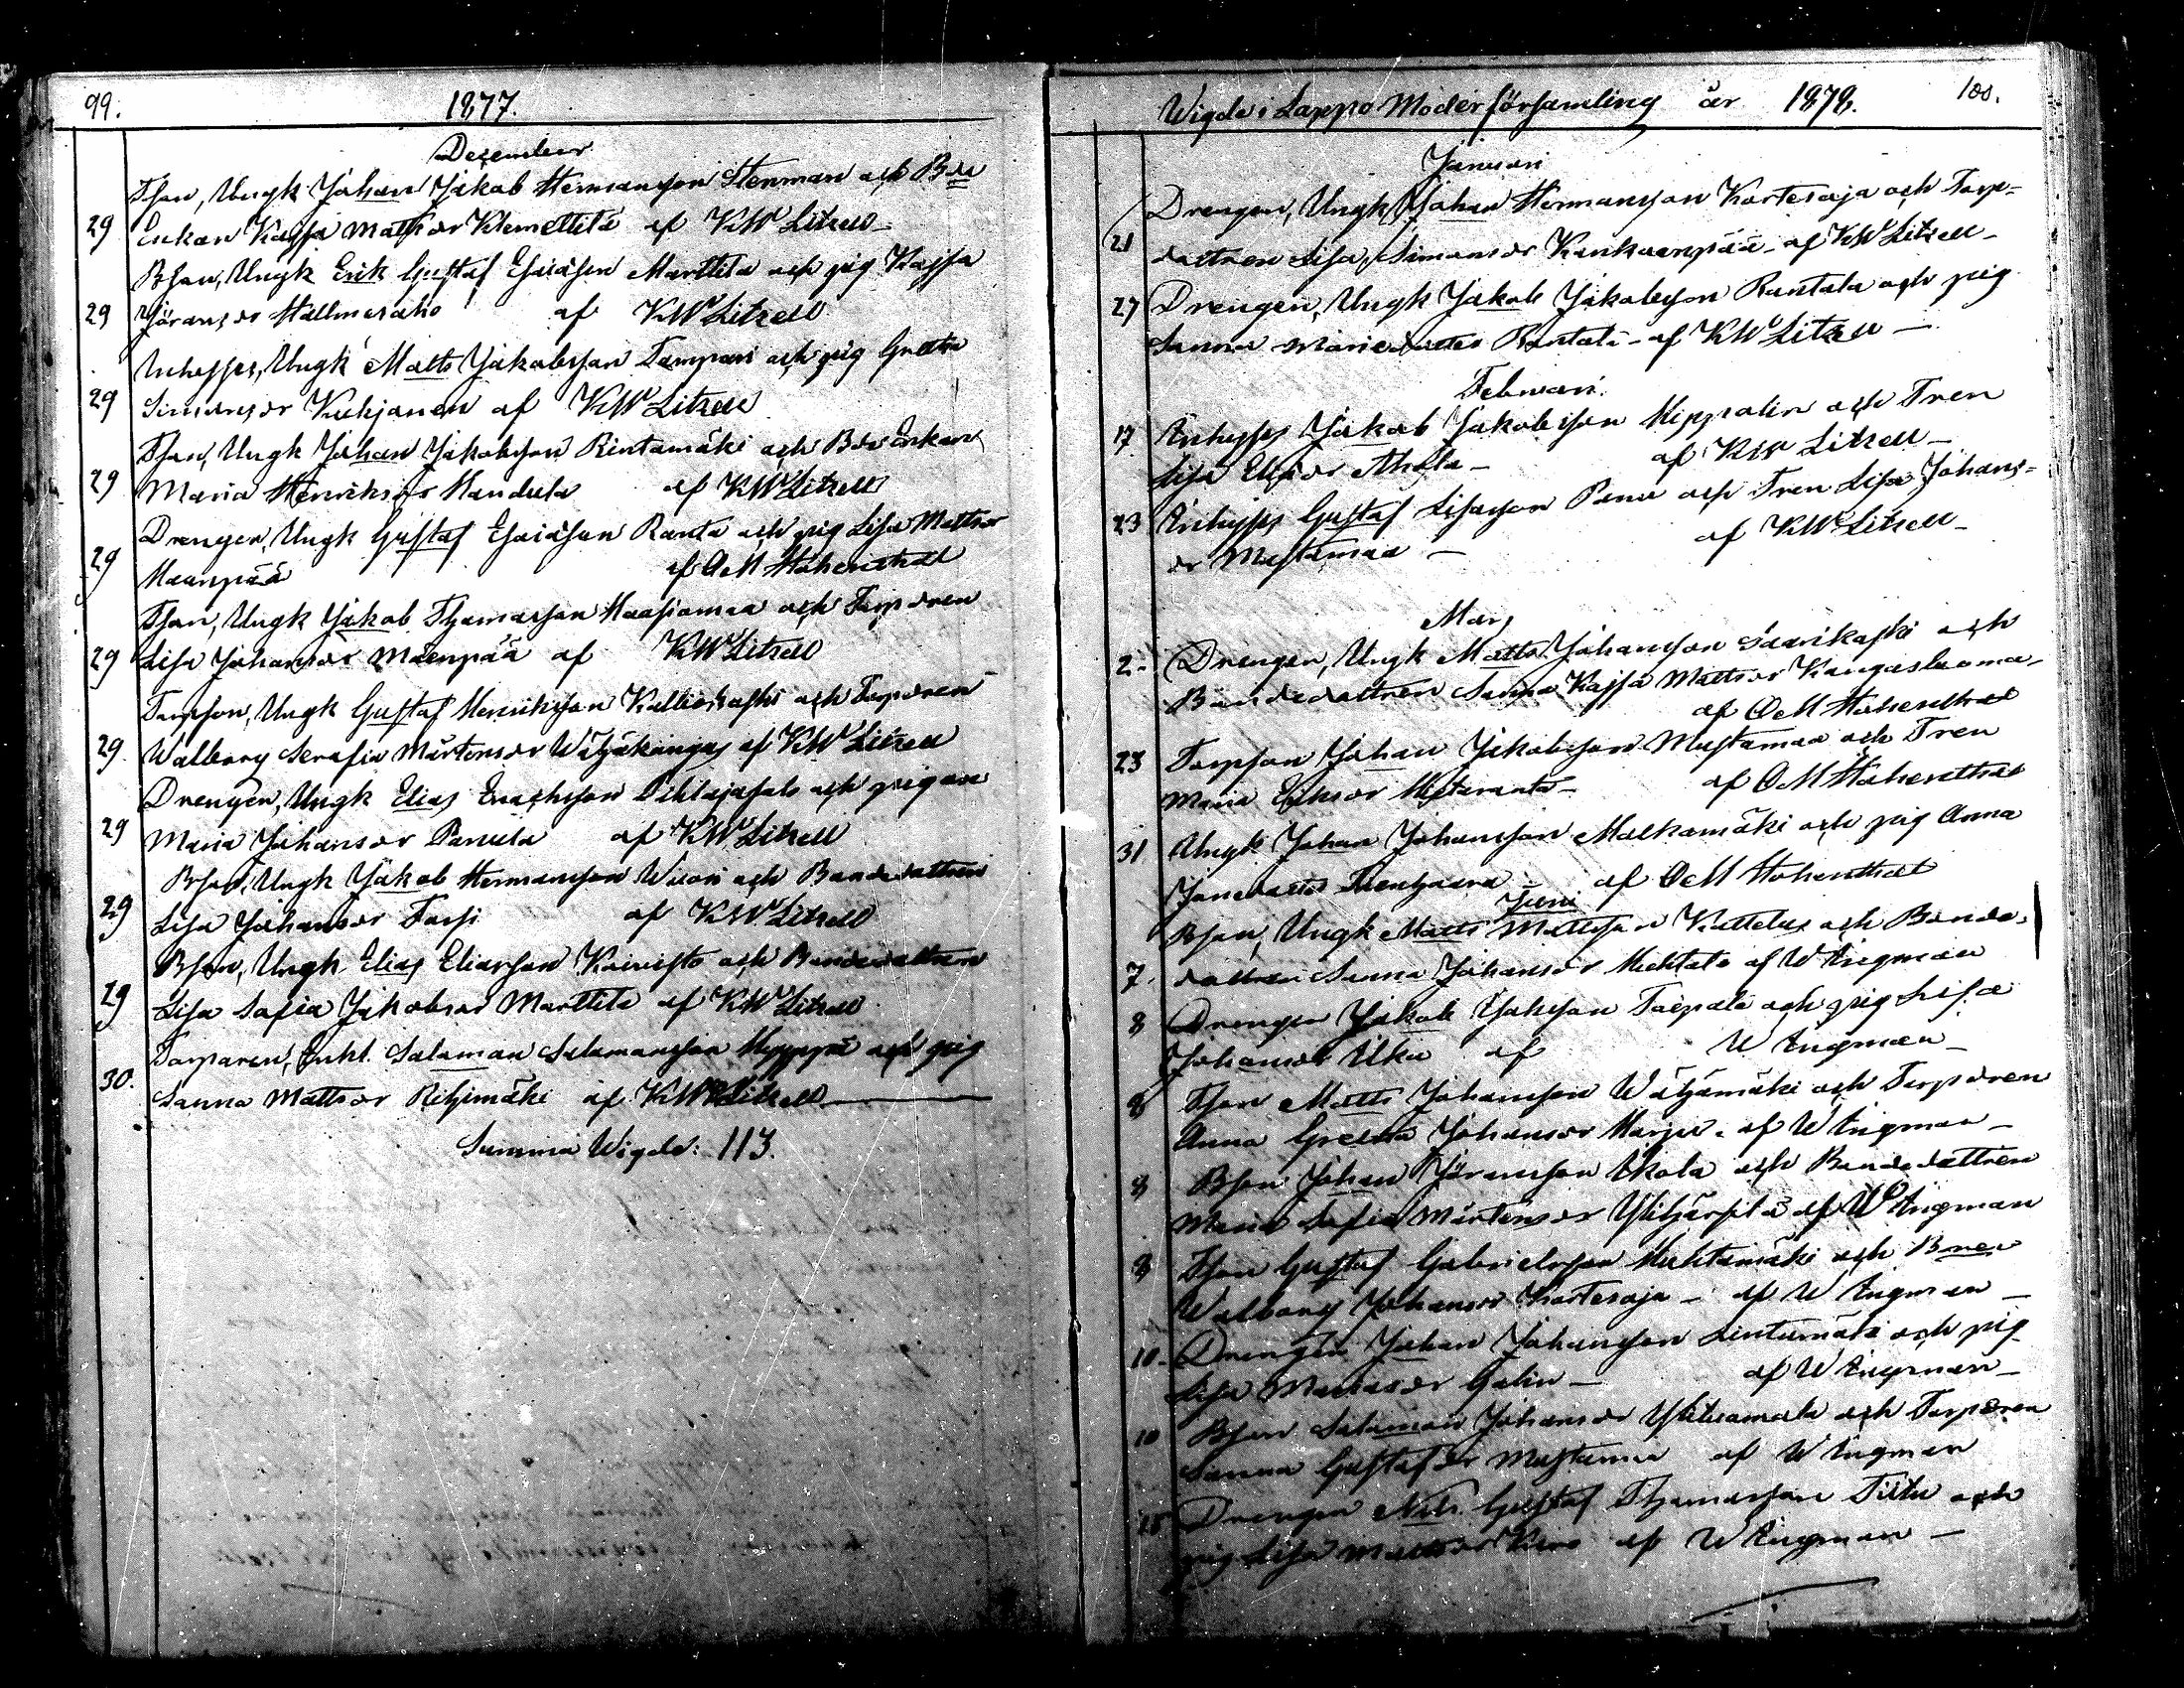 99.
1877.
December
Tson, Ungk Johan Jakob Hermansson Stenman och Bde
29 Enkan Kajsa Matsdr Klemettilä af KW Litzell
Bson, Ungk Erik Gustaf Esaiasson Marttila och pig Kajsa
29 Göransdr Hallmesaho af KW Litzell
Inhyses, Ungk Matts Jakobsson Tampari och pig Greta
29 Simonsdr Kuhjanen af KW Litzell
Tson, Ungk Johan Jakobsson Rintamäki och Bde Enkan
29 Maria Henriksdr Handula af KW Litzell
Drengen, Ungk Gustaf Esaiasson Ranta och pig Lisa Mattsdr
29 Haanpää af OM Hohenthal
Tson, Ungk Jakob Thomasson Haapamaa och Torpdren
29 Lisa Johansdr Mäenpää af KW Litzell
Torpson, Ungk Gustaf Henriksson Kalliokoski och Torpdren
29. Walborg Serafia Mårtensdr Wäljäkangas af KW Litzell
Drengen, Ungk Elias Enochsson Pihlajasalo och pigan
29 Maria Johansdr Panula af KW Litzell
Bson, Ungk Jakob Hermansson Wuori och Bondedattren
29 Lisa Johansdr Torpi af KW Litzell
Bson, Ungk Elias Eliasson Koivisto och Bondedattren
29 Lisa Sofia Jakobsdr Marttila af KW Litzell
Torparen, Enkl. Salamon Salamonsson Hyyppä och pig
30. Sanna Mattsdr Rihimäki af KW Litzell
Summa Wigde: 113.
Wigde i Lappo Moderförsamling år 1878. 100.
Januari
Drengen, Ungk Johan Hermansson Kortesoja och Torp-
21 dattren Lisa Simonsdr Kankaanpää af KW Litzell
27 Drengen, Ungk Jakob Jakobsson Rantala och pig
Sanna Mariedatter Rintala af KW Litzell
Februari.
17 Inhyses Jakob Jakobsson Hipp och Tren
Lisa Eliædr Ahola af KW Litzell
23 Inhyses Gustaf Lisasson Panu och Tren Lisa Johans-
dr Mustamaa af KW Litzell
Mars
2. Drengen, Ungk Matts Johansson Saarikoski och
Bondedattren Sanna Kajsa Mattsdr Kangasluoma
af OM Hohenthal
23 Torpson Johan Jakobsson Mustamaa och Tren
Maria Eriksdr af OM Hohenthal
31 Ungk Johan Johansson Malkamäki och pig Anna
af OM Hohenthal
Juni
Bson, Ungk Matts Mattsson Kattelus och Bonde-
7. dattren Sanna Johansdr Huhtala af W Ingman
8 Drengen Jakob Jakosson Taipale och pig Lisa
Johansdr Uku af W Ingman
8 Tson Matts Johansson Wäljämäki och Torpdren
Anna Greta Johansdr Harju af W Ingman
8 Bson Johan Göransson Ekola och Bondedattren
Maria Sofia Mårtensdr af W Ingman
8 Tson Gustaf Gabrielsson Huhtamäki och
Walborg Johansdr Kortesoja af W Ingman
10. Drengen Johan Johansson Lintamäki och pig
Lisa Mariasdr Galin af W Ingman
10 Bson Salamon Johansdr och Torpdren
Sanna Gustafsdr Mustamaa af W Ingman
15 Drengen Nils Gustaf Thomasson Tiitu och
pig Lisa Mattsdr af W Ingman